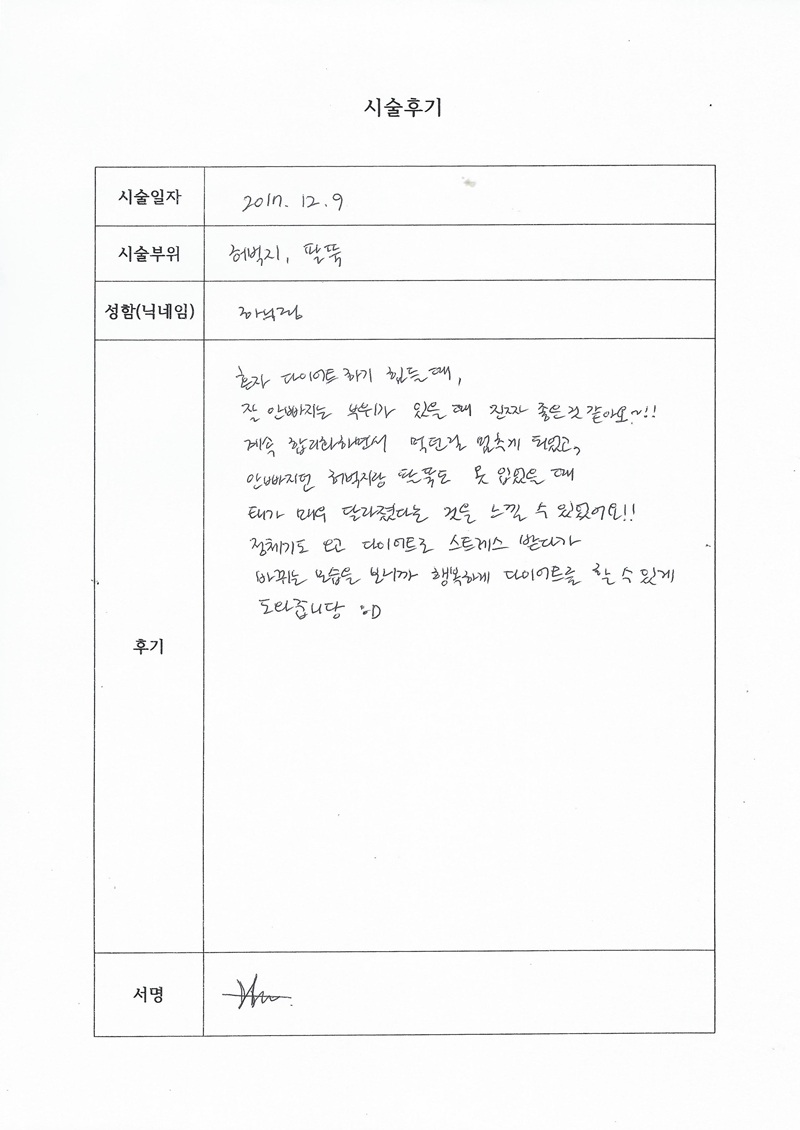 시술후기
시술일자 2017. 12. 9
시술부위 허벅지, 팔뚝
성함(닉네임)
혼자 다이어트하기 힘들때,
잘 안빠지는 부위가 있을 때 진짜 좋은것 같아요~!!
계속 합리화하면서 먹던걸 멈추게 되었고,
안빠지던 허벅지랑 팔뚝도 옷 입었을 때
태가 매우 달라졌다는 것을 느낄 수 있었어요!!
정체기도 오고 다이어트로 스트레스 받다가
바뀌는 모습을 보니까 행복하게 다이어트를 할 수 있게
도와줍니당 :D
후기
서명